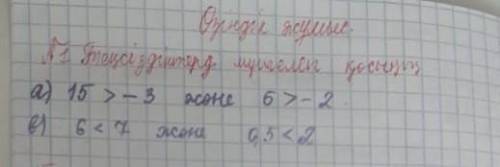 Өзіндік жұмыс.
№1 Теңсіздіктерді мүшелеп қосыңыз
а) 15 > -3 және 6 > -2.
в) 6 < 7 және 0,3 < 2